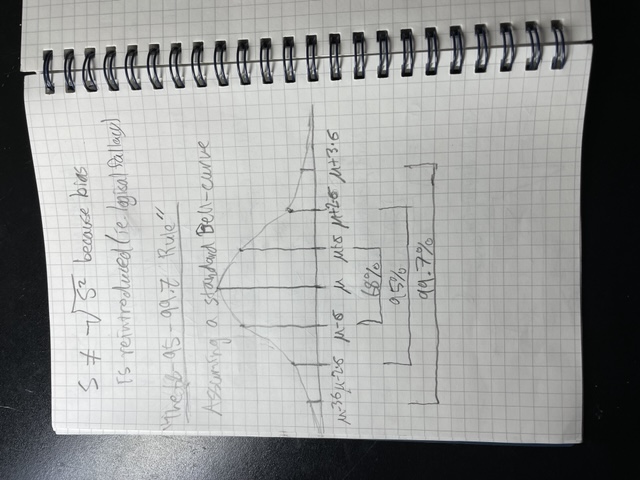 S ≠ √S² because bias
is reintroduced (ie. logical fallacy)
"The 68-95-99.7 Rule"
Assuming a standard Bell-curve
μ-3σ μ-2·σ μ-σ μ μ+σ μ+2·σ μ+3·σ
68%
95%
99.7%